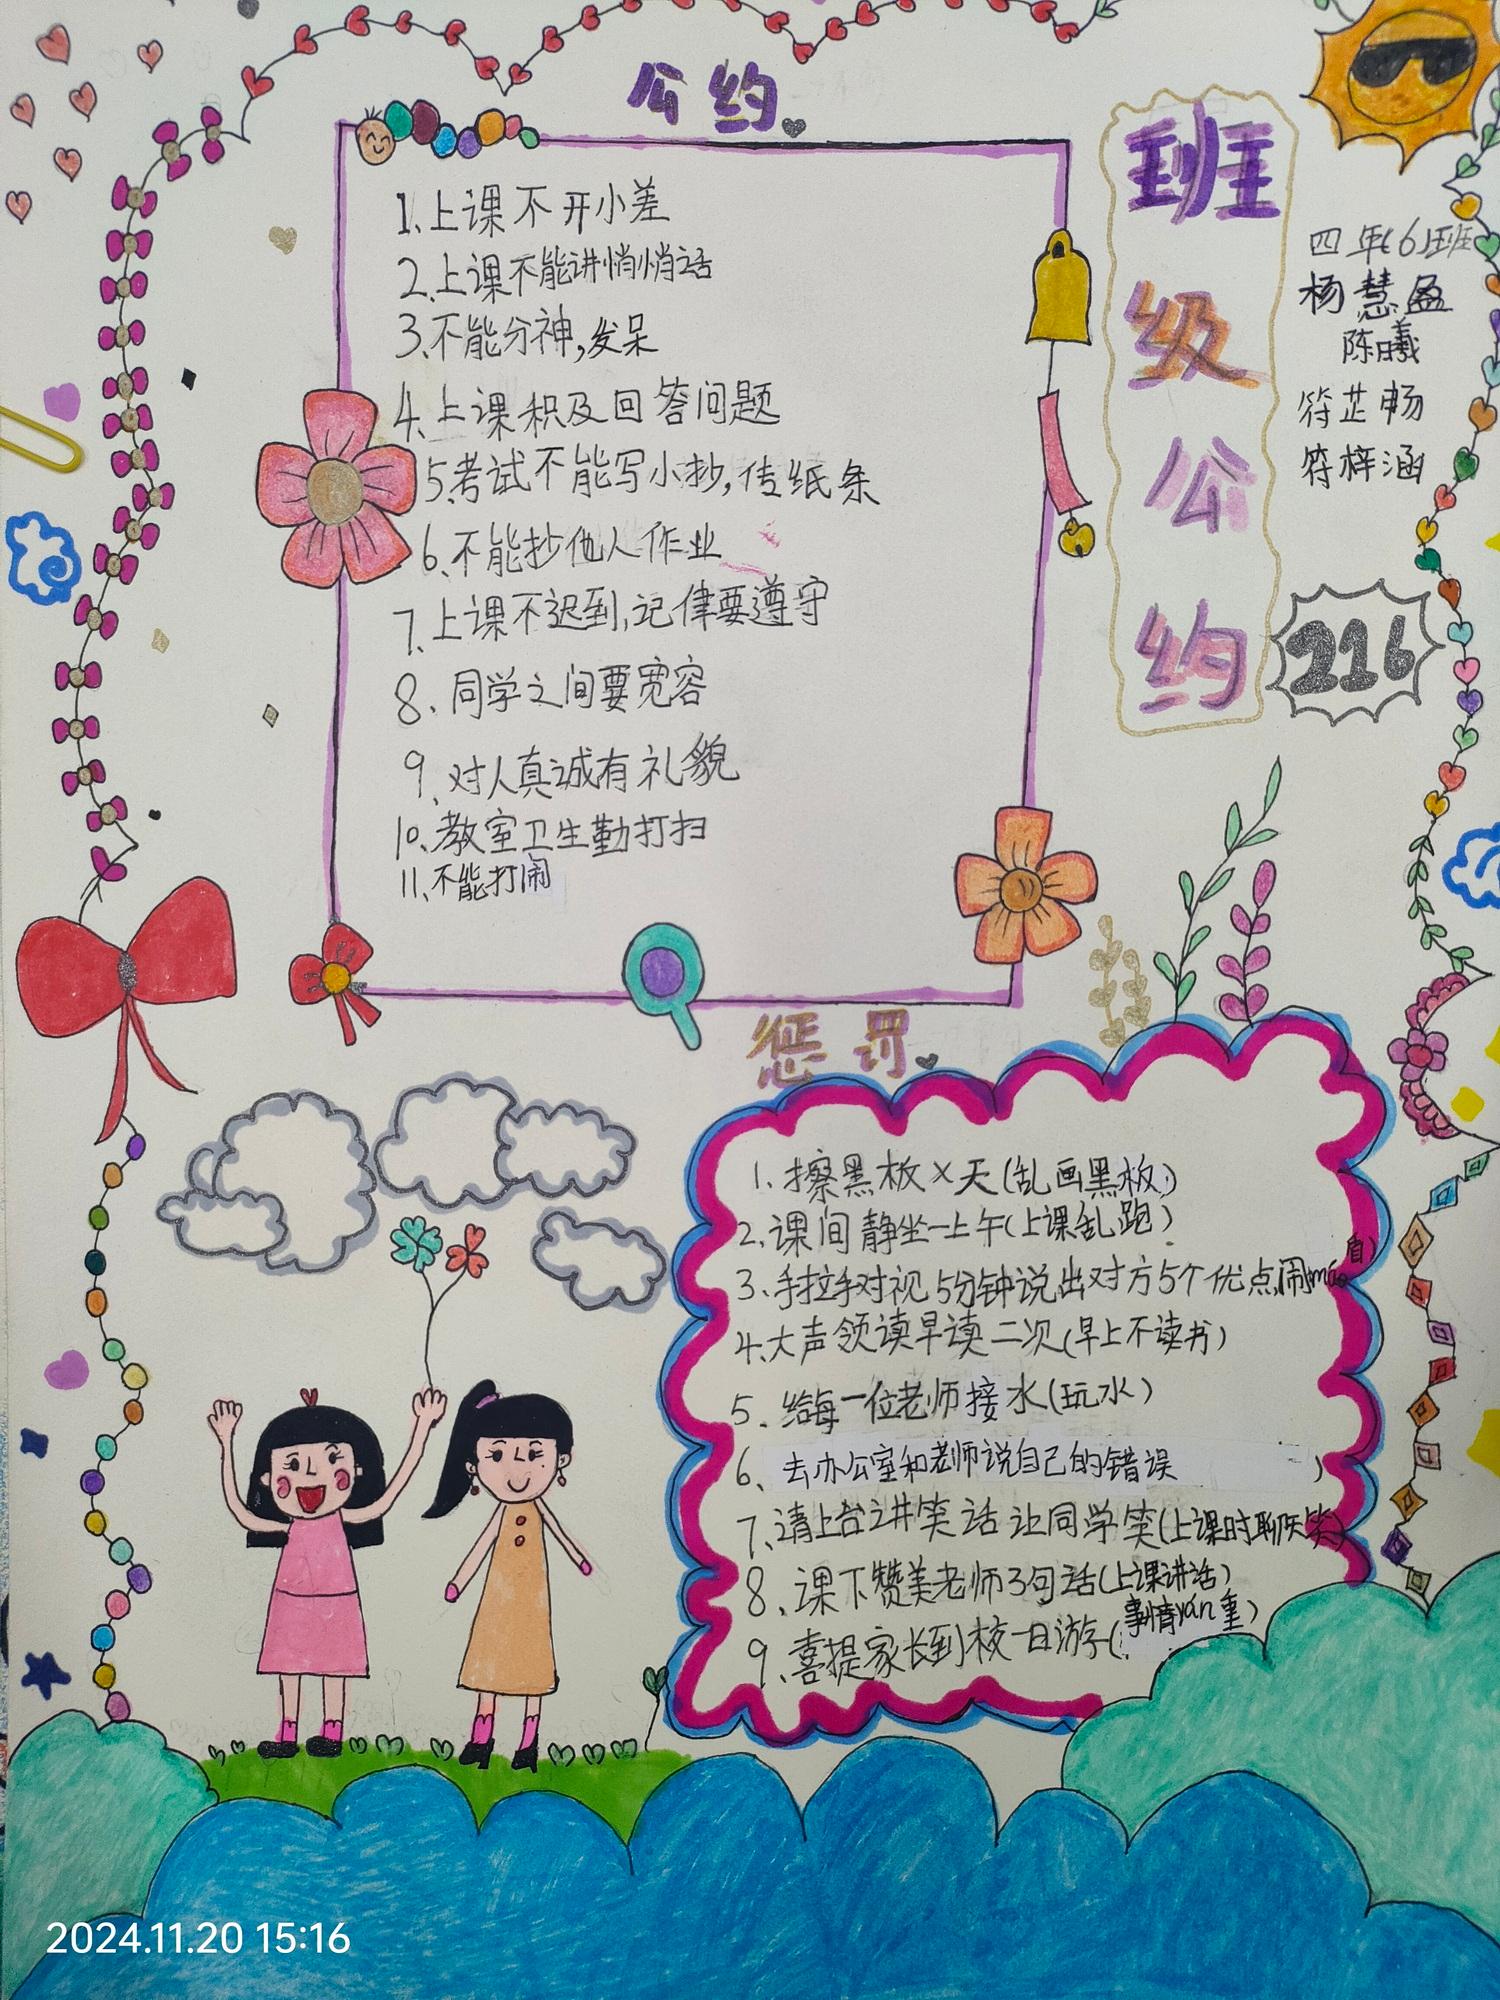 公约
1、上课不开小差
2、上课不能讲悄悄话
3、不能分神,发呆
4、上课积及回答问题
5、考试不能写小抄,传纸条
6、不能抄他人作业
7、上课不迟到,记律要遵守
8、同学之间要宽容
9、对人真诚有礼貌
10、教室卫生勤打扫
11、不能打闹
班级公约
四年(6)班
杨慧盈
陈曦
符芷畅
符梓涵
216
惩罚
1、擦黑板×天(乱画黑板)
2、课间静坐一上午(上课乱跑)
3、手拉手对视5分钟说出对方5个优点,闹máo盾)
4、大声领读早读二次(早上不读书)
5、给每一位老师接水(玩水)
6、去办公室和老师说自己的错误 )
7、请上台讲笑话让同学笑(上课时聊天笑)
8、课下赞美老师3句话(上课讲话)
9、喜提家长到校一日游(事情yán重)
2024.11.20 15:16